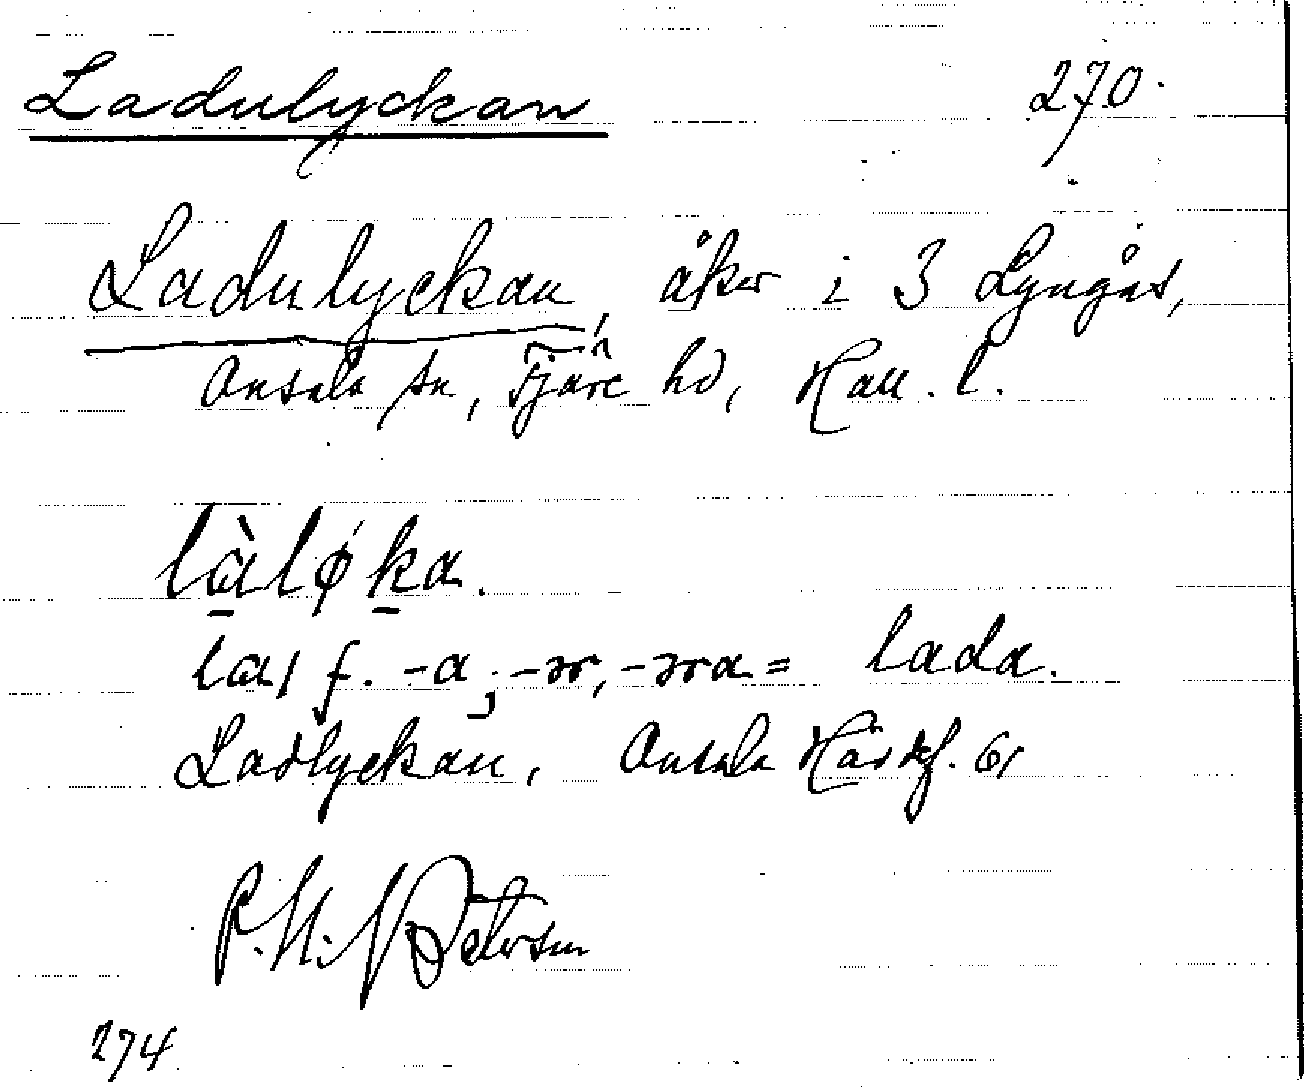 Ladulyckan 270.
Ladulyckan, åker i 3 Lyngås,
Onsala sn, Fjäre hd, Hall. l.
là̱lǿḵa.
la, f. -a; -ər, -əra = lada.
Ladlyckan, Onsala Häskf. 61
P. N. Petersen
274